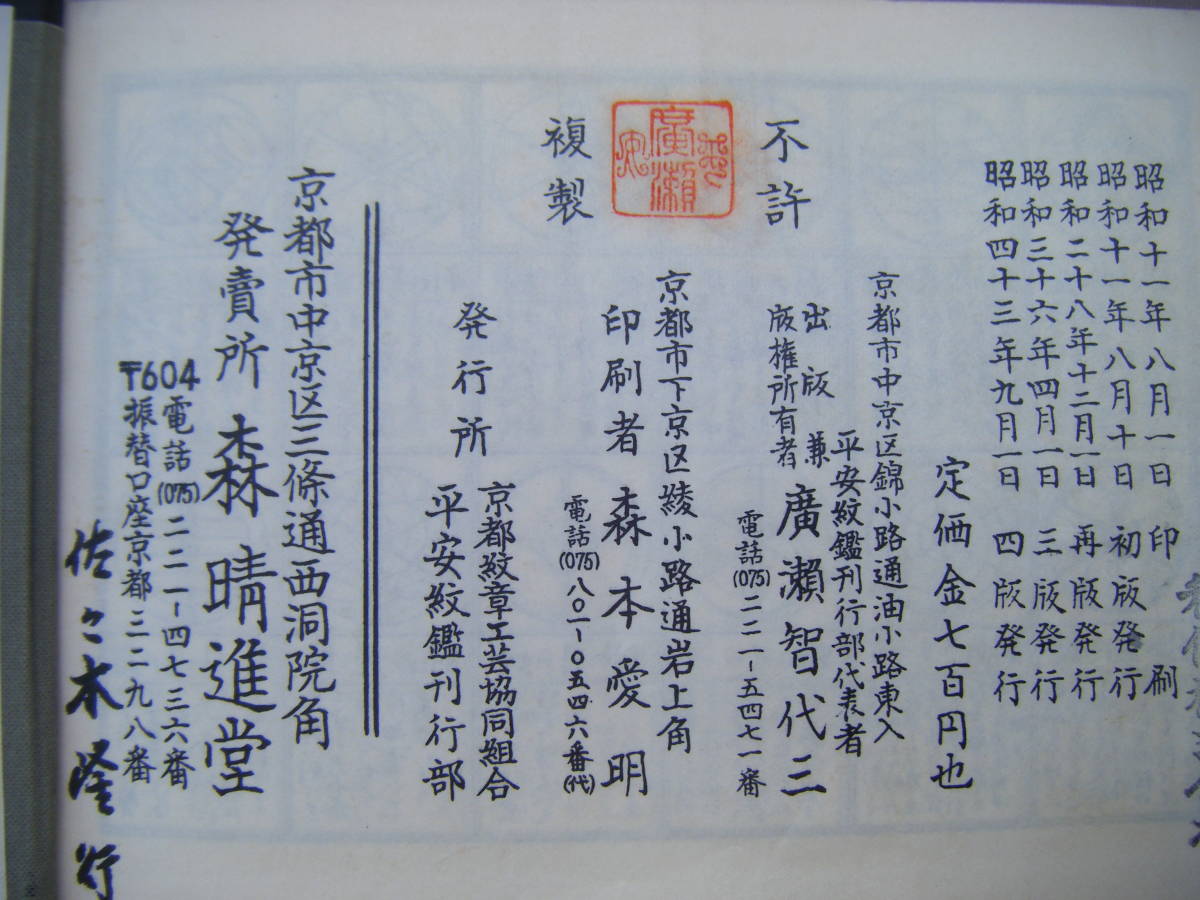 昭和十一年八月一日 印刷
昭和十一年八月十日 初版発行
昭和二十八年十二月一日 再版発行
昭和三十六年四月一日 三版発行
昭和四十三年九月一日 四版発行
定価金七百円也
不許
複製
廣瀬
京都市中京区錦小路通油小路東入
平安紋鑑刊行部代表者
出版兼
版権所有者
廣瀬智代三
電話(075)二二一-五四七一番
京都市下京区綾小路通岩上角
印刷者 森本愛明
電話(075)八〇一-〇五四六番(代)
発行所
京都紋章工芸協同組合
平安紋鑑刊行部
京都市中京区三條通西洞院角
発賣所 森晴進堂
〒604
電話(075)二二一-四七三六番
振替口座京都三二九八番